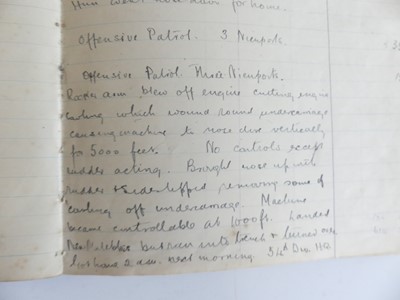 Hun went nose down for home.
Offensive Patrol. 3 Nieuports.
Offensive Patrol. Three Nieuports.
Rocker arm blew off engine cutting engine
cowling which wound round undercarriage
causing machine to nose dive vertically
for 5000 feet. No controls except
rudder acting. Brought nose up with
rudder & sideslipped removing some of
cowling off undercarriage. Machine
became controllable at 1000ft. Landed
but ran into trench & turned over
2 a.m. next morning.